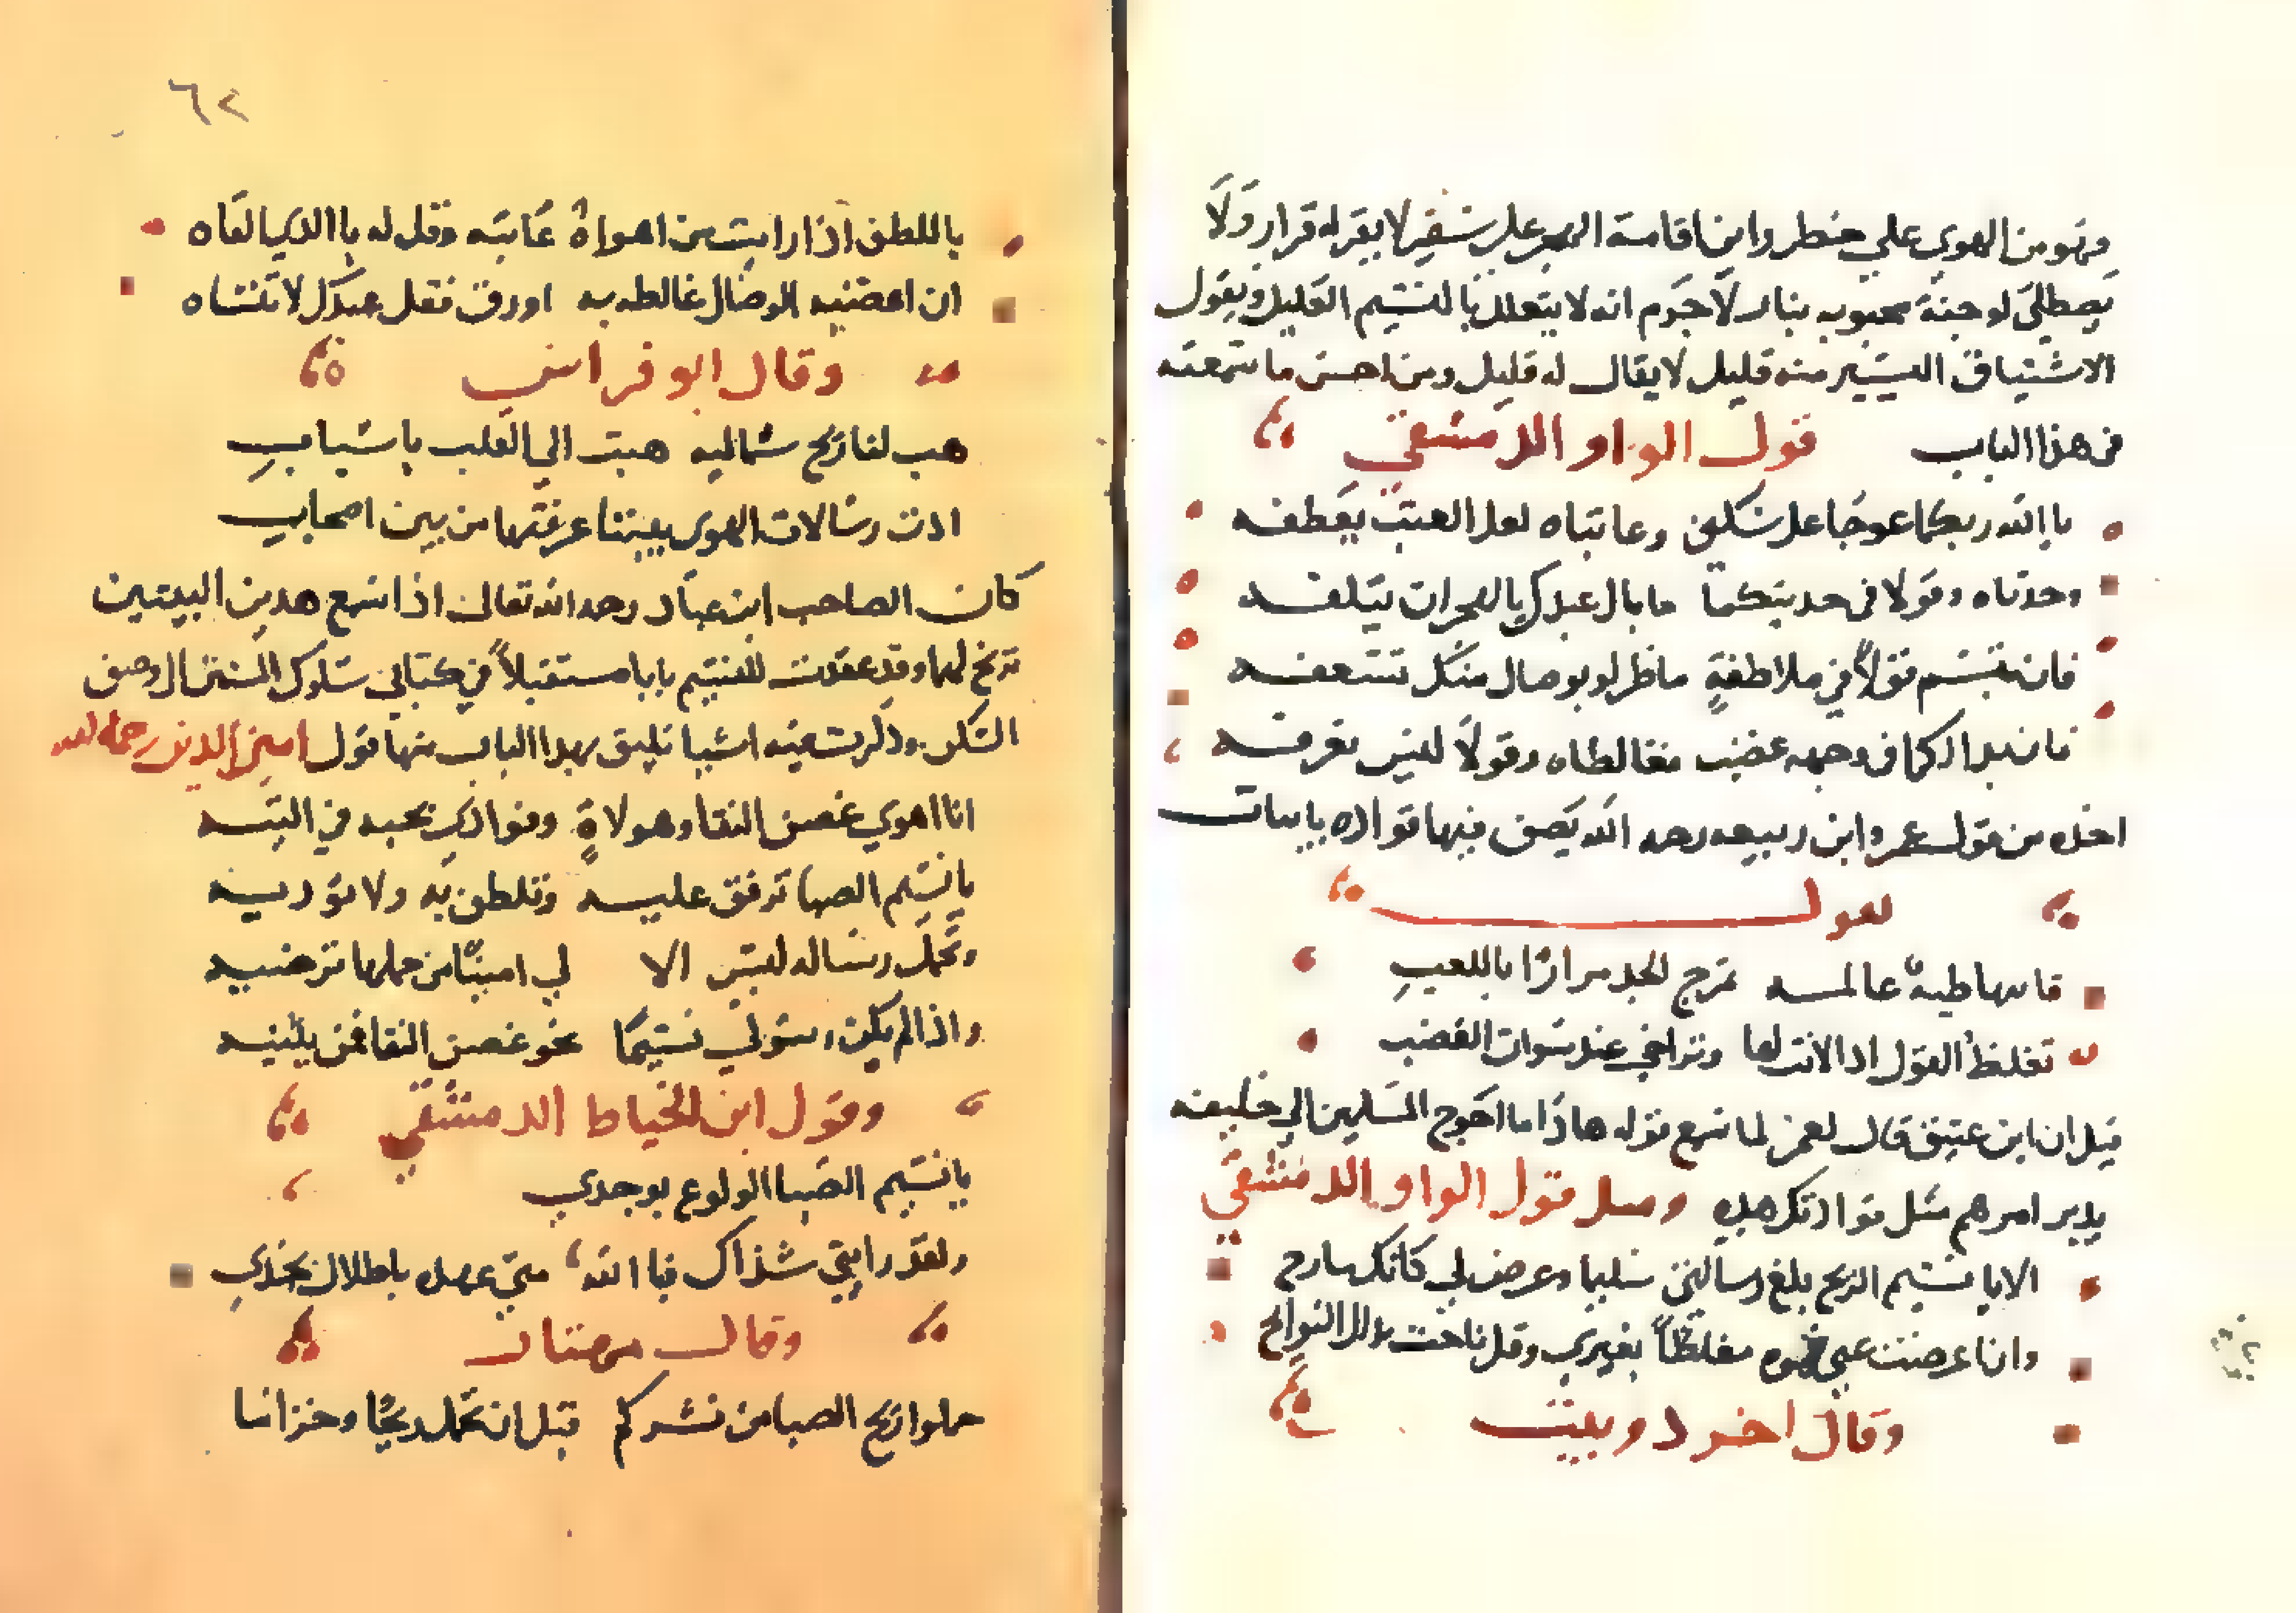 وهو من الهوي علي خطر وان اقامته الهجر علي سفر لا يقر له قرار ولا
يصطلي له جنة محبوبه بنار لا جرم انه لا يتعلل بالنسيم العليل ويقول
الاشتياق اليسير منه قليل لا يقال له قليل ومن احسن ما سمعته
في هذا الباب قول الواو الدمشقي
بالله ربكما عوجا علي سكني وعاتباه لعل العتب يعطفه
وحدثاه وقولا في حديثكما ما بال عبدك بالهجران تتلفه
فان تبسم قولا في ملاطفةٍ ما ضر لو بوصال منك تسعفه
فان بدا لكما في وجهه غضب فغالطاه وقولا ليس نعرفه
اخذه من قول عمر وابن ربيعه رحمه الله يصف فيها قواده بابيات
يقول
فاتتها طبةٌ عالمه تمزج الجد مرارًا باللعبِ
تغلظ القول اذا لانت لها وتراخي عند سوات الغضب
قيل ان ابن عتيق قال لعمر لما سمع قوله هاذا ما احوج المسلمين الي خليفه
يدبر امرهم مثل قوادتك هذه ومثله قول الواو الدمشقي
الا يا نسيم الريح بلغ رسالتي سليما وعرض لي كانك مازح
وان اعرضت عني فموه مغلطاً بغيري وقل ناحت بذاك النوايح
وقال اخر دوبيت
٦٢
باللطف اذا رايت من اهواهُ عاتبه وقل له بالذي القاه
ان اغضبه الوصال غالطه به اورق فقل عبدك لا تنساه
وقال ابو فراس
هب لنا ريح شماليه هبت الي القلب باسبابِ
ادت رسالات الهوي بيننا عرفتها من بين اصحابي
كان الصاحب ابن عباد رحمه الله تعالي اذا سمع هذين البيتين
ترنح لهما وقد عقدت للنسيم بابا مستقبلاً في كتابي سلوك السنن الي وصف
السكن وذكرت فيه اشيا تليق بهذا الباب منها قول امين الدين رحمه الله
انا اهوي غصن النقا وهو لاهٍ وفوادي بحبه في التيه
يا نسيم الصبا ترفق عليه وتلطف به ولا توديه
وتحمل رساله ليس الا لي امينًا من حملها ترضيه
واذا لم يكن رسولي نسيمًا نحو غصن النقا فمن يثنيه
وقول ابن الخياط الدمشقي
يا نسيم الصبا الولوع بوجدي
ولقد رابني شذاك فبا الله متي عهده باطلال نجدي
وقال مهيار
حملوا ريح الصبا من نشركم قبل ان تحمل ريحًا وخزاما